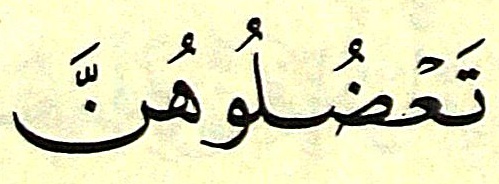 تَعْضُلُوهُنَّ